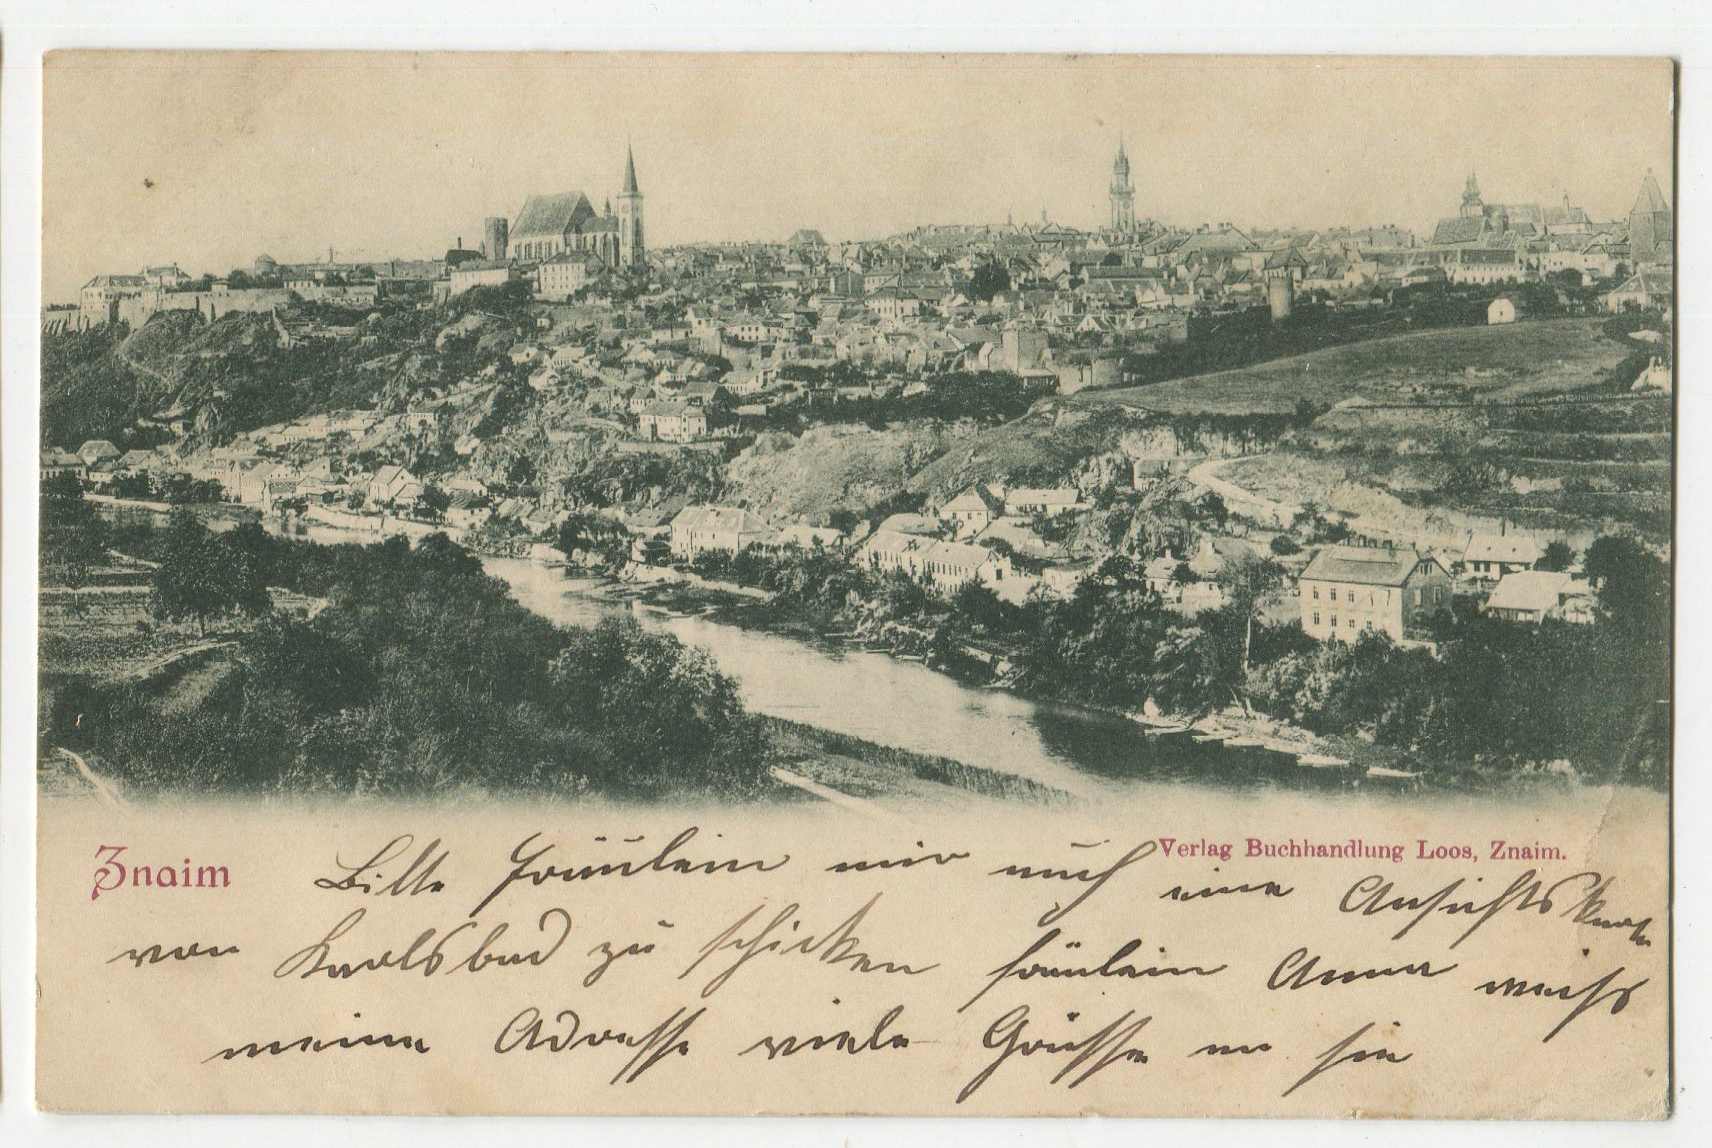 Verlag Buchhandlung Loos, Znaim.
Znaim
Bitte Fräulein mir auch eine Ansichtskarte
von Karlsbad zu schicken fräulein Anna weiß
meine Adresse viele Grüsse an sie